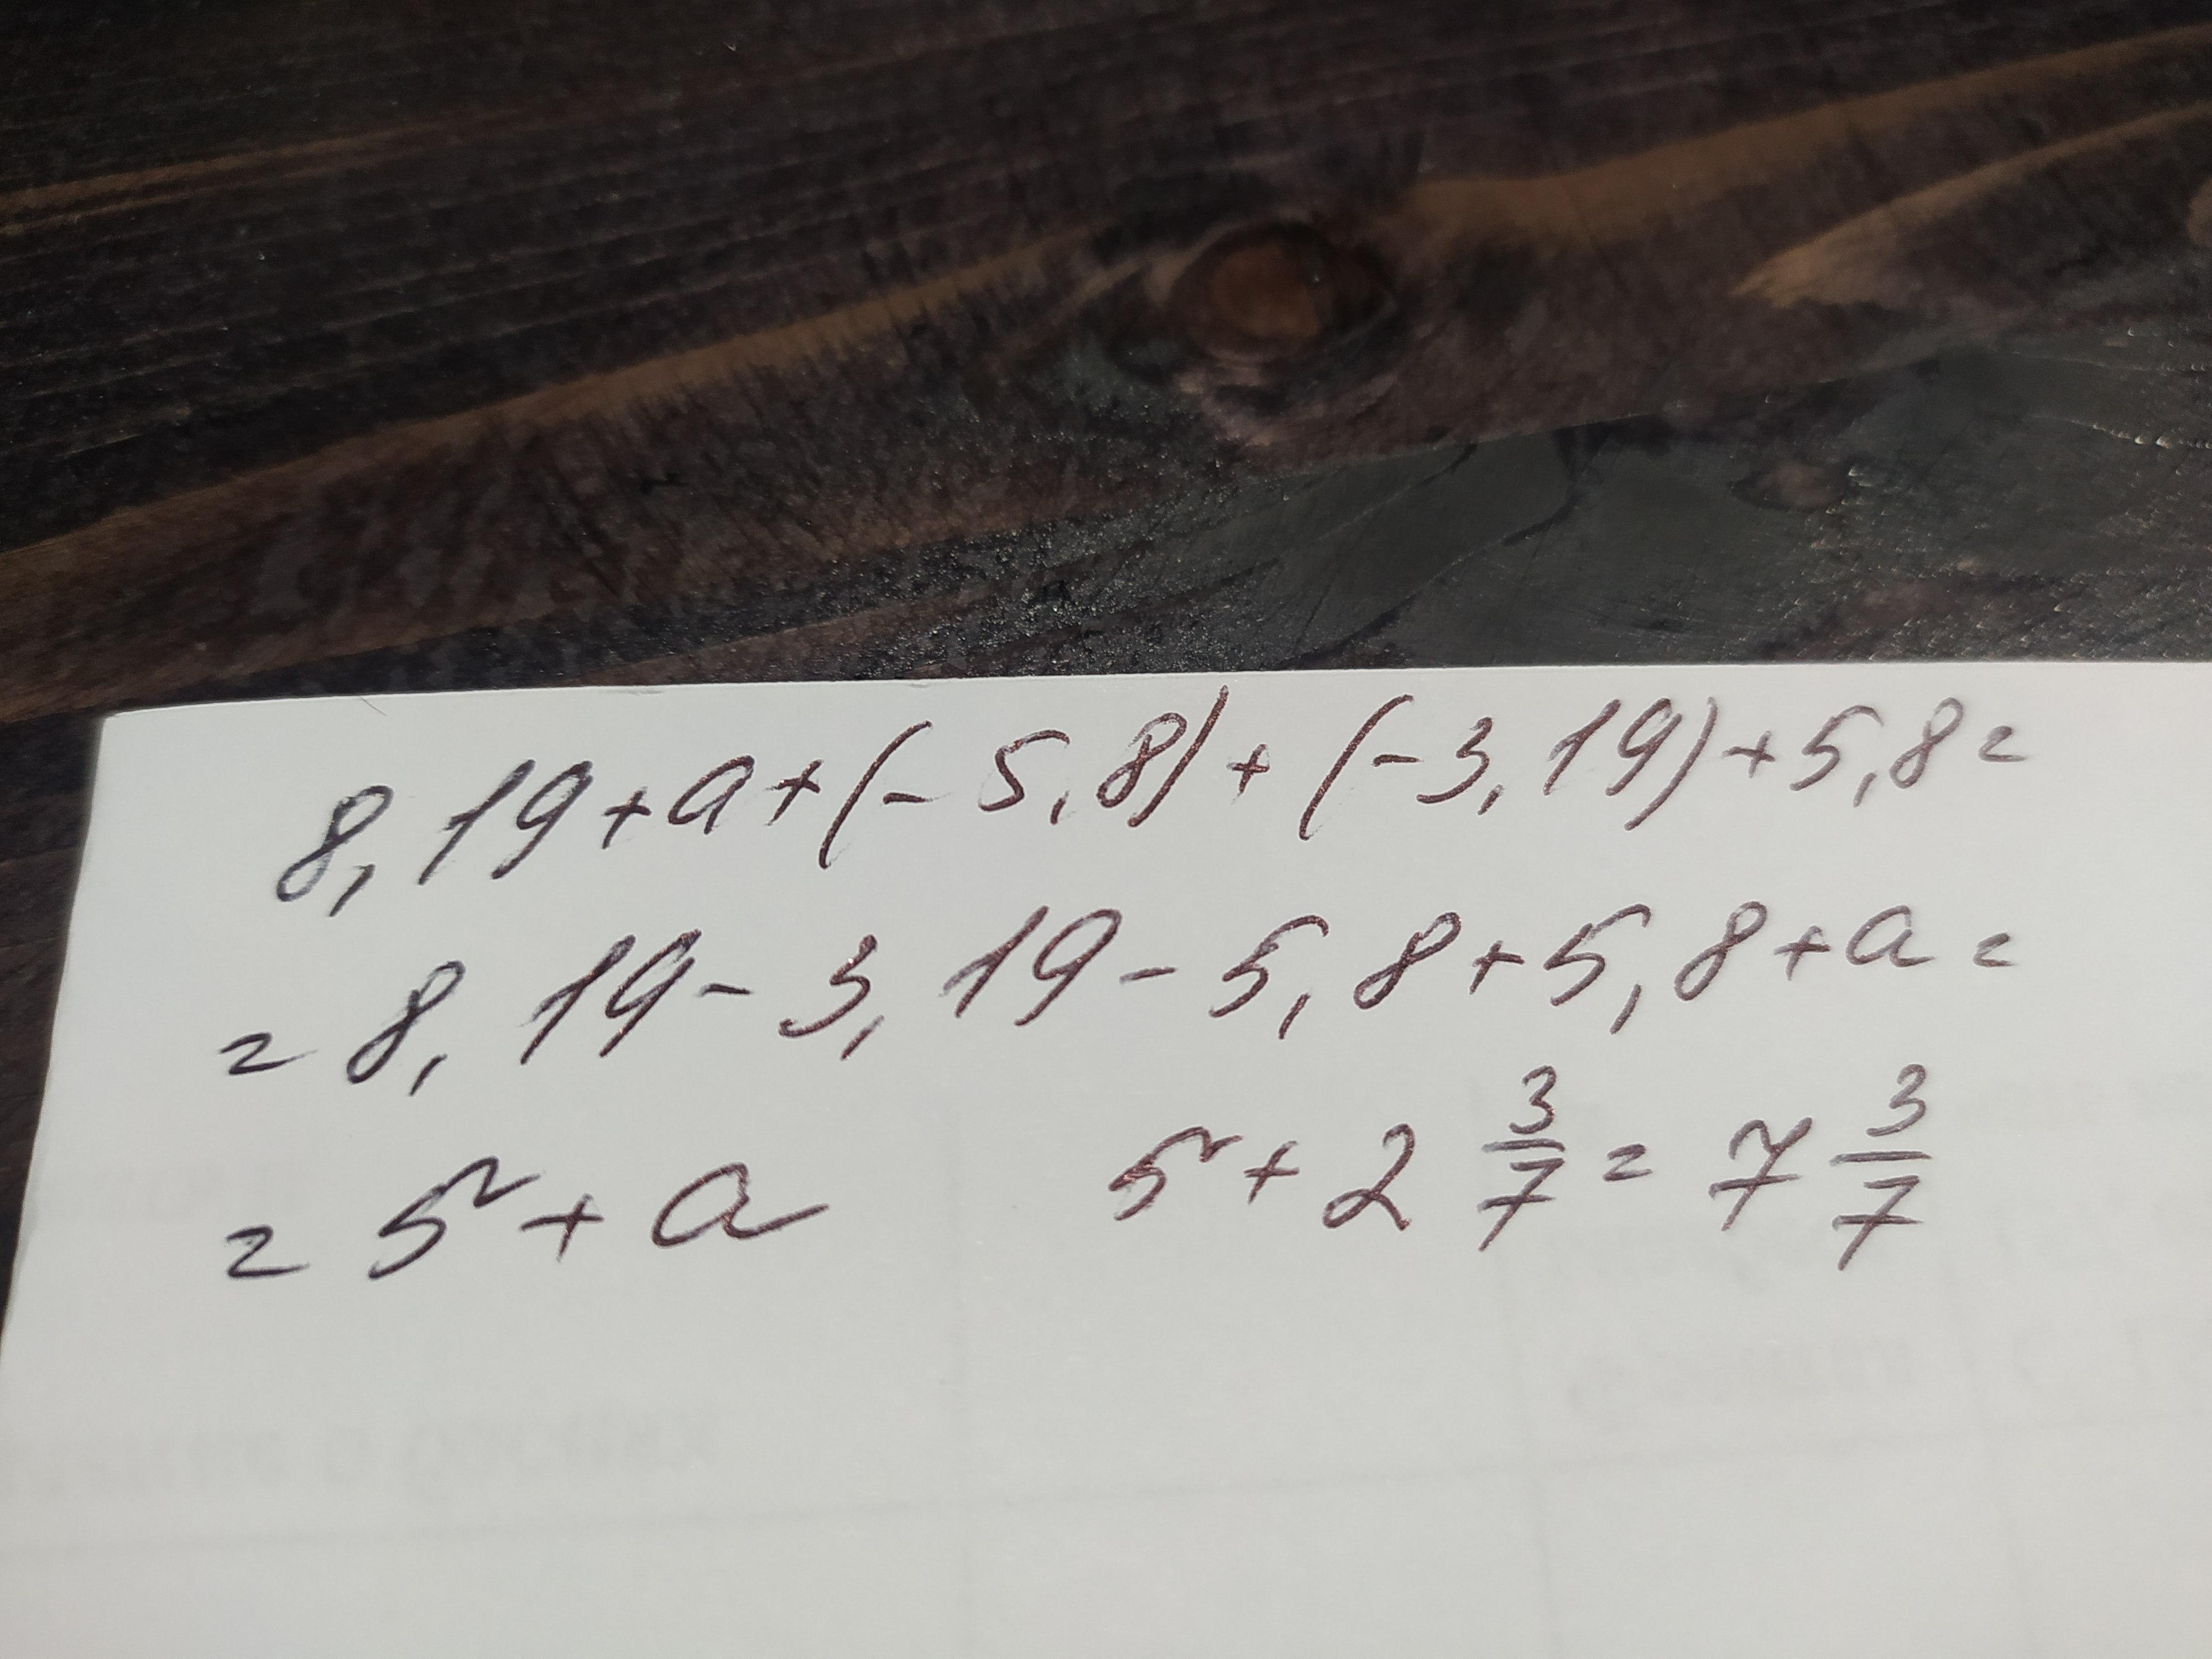 8,19+a+(-5,8)+(-3,19)+5,8=
=8,19-3,19-5,8+5,8+a=
=5+a 5+2 3/7=7 3/7